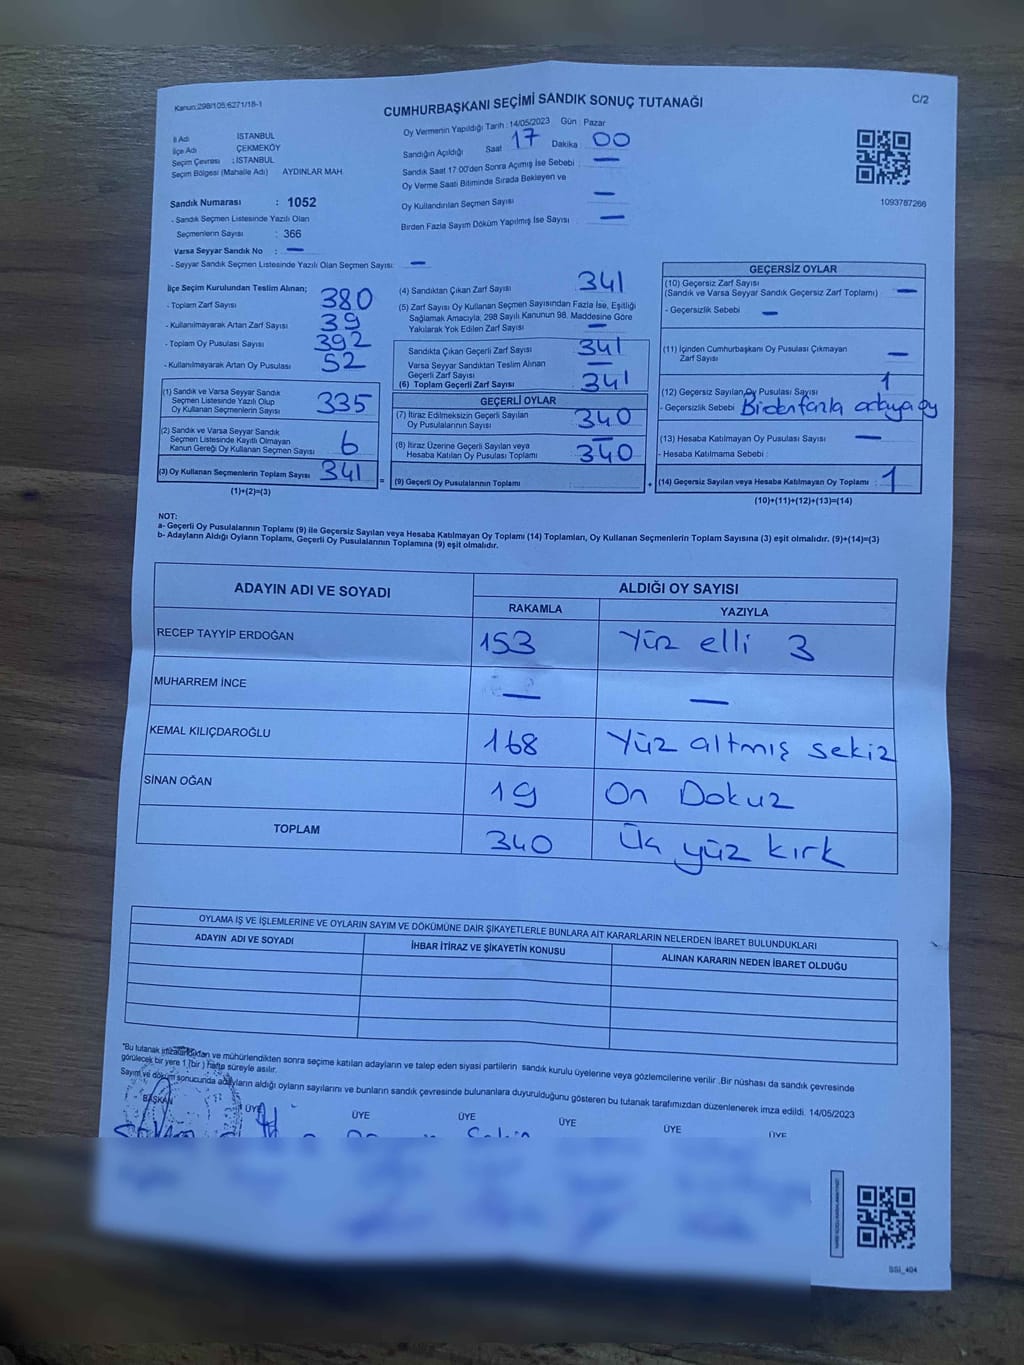 Kanun:298/105;6271/18-1
CUMHURBAŞKANI SEÇİMİ SANDIK SONUÇ TUTANAĞI
C/2
İl Adı İSTANBUL
İlçe Adı ÇEKMEKÖY
Seçim Çevresi : İSTANBUL
Seçim Bölgesi (Mahalle Adı) AYDINLAR MAH.
Sandık Numarası : 1052
- Sandık Seçmen Listesinde Yazılı Olan
Seçmenlerin Sayısı : 366
Varsa Seyyar Sandık No : —
- Seyyar Sandık Seçmen Listesinde Yazılı Olan Seçmen Sayısı: —
Oy Vermenin Yapıldığı Tarih : 14/05/2023 Gün : Pazar
Sandığın Açıldığı Saat 17 Dakika 00
Sandık Saat 17:00'den Sonra Açılmış İse Sebebi : —
Oy Verme Saati Bitiminde Sırada Bekleyen ve
Oy Kullandırılan Seçmen Sayısı —
Birden Fazla Sayım Döküm Yapılmış İse Sayısı —
1093787266
İlçe Seçim Kurulundan Teslim Alınan;
- Toplam Zarf Sayısı 380
- Kullanılmayarak Artan Zarf Sayısı 39
- Toplam Oy Pusulası Sayısı 392
- Kullanılmayarak Artan Oy Pusulası 52
(1) Sandık ve Varsa Seyyar Sandık
Seçmen Listesinde Yazılı Olup
Oy Kullanan Seçmenlerin Sayısı 335
(2) Sandık ve Varsa Seyyar Sandık
Seçmen Listesinde Kayıtlı Olmayan
Kanun Gereği Oy Kullanan Seçmen Sayısı 6
(3) Oy Kullanan Seçmenlerin Toplam Sayısı 341
(1)+(2)=(3)
(4) Sandıktan Çıkan Zarf Sayısı 341
(5) Zarf Sayısı Oy Kullanan Seçmen Sayısından Fazla İse, Eşitliği
Sağlamak Amacıyla, 298 Sayılı Kanunun 98. Maddesine Göre
Yakılarak Yok Edilen Zarf Sayısı —
Sandıkta Çıkan Geçerli Zarf Sayısı 341
Varsa Seyyar Sandıktan Teslim Alınan
Geçerli Zarf Sayısı —
(6) Toplam Geçerli Zarf Sayısı 341
GEÇERLİ OYLAR
(7) İtiraz Edilmeksizin Geçerli Sayılan
Oy Pusulalarının Sayısı 340
(8) İtiraz Üzerine Geçerli Sayılan veya
Hesaba Katılan Oy Pusulası Toplamı —
340
=
(9) Geçerli Oy Pusulalarının Toplamı
+
GEÇERSİZ OYLAR
(10) Geçersiz Zarf Sayısı
(Sandık ve Varsa Seyyar Sandık Geçersiz Zarf Toplamı) —
- Geçersizlik Sebebi : —
(11) İçinden Cumhurbaşkanı Oy Pusulası Çıkmayan
Zarf Sayısı —
(12) Geçersiz Sayılan Oy Pusulası Sayısı 1
- Geçersizlik Sebebi Birden fazla adaya oy
(13) Hesaba Katılmayan Oy Pusulası Sayısı —
- Hesaba Katılmama Sebebi :
(14) Geçersiz Sayılan veya Hesaba Katılmayan Oy Toplamı : 1
(10)+(11)+(12)+(13)=(14)
NOT:
a- Geçerli Oy Pusulalarının Toplamı (9) ile Geçersiz Sayılan veya Hesaba Katılmayan Oy Toplamı (14) Toplamları, Oy Kullanan Seçmenlerin Toplam Sayısına (3) eşit olmalıdır. (9)+(14)=(3)
b- Adayların Aldığı Oyların Toplamı, Geçerli Oy Pusulalarının Toplamına (9) eşit olmalıdır.
ADAYIN ADI VE SOYADI ALDIĞI OY SAYISI
RAKAMLA YAZIYLA
RECEP TAYYİP ERDOĞAN 153 Yüz elli 3
MUHARREM İNCE — —
KEMAL KILIÇDAROĞLU 168 Yüz altmış sekiz
SİNAN OĞAN 19 On Dokuz
TOPLAM 340 Üç yüz kırk
OYLAMA İŞ VE İŞLEMLERİNE VE OYLARIN SAYIM VE DÖKÜMÜNE DAİR ŞİKAYETLERLE BUNLARA AİT KARARLARIN NELERDEN İBARET BULUNDUKLARI
ADAYIN ADI VE SOYADI İHBAR İTİRAZ VE ŞİKAYETİN KONUSU ALINAN KARARIN NEDEN İBARET OLDUĞU
"Bu tutanak imzalandıktan ve mühürlendikten sonra seçime katılan adayların ve talep eden siyasi partilerin sandık kurulu üyelerine veya gözlemcilerine verilir .Bir nüshası da sandık çevresinde
görülecek bir yere 1 (bir ) hafta süreyle asılır.
Sayım ve döküm sonucunda adayların aldığı oyların sayılarını ve bunların sandık çevresinde bulunanlara duyurulduğunu gösteren bu tutanak tarafımızdan düzenlenerek imza edildi. 14/05/2023
BAŞKAN ÜYE ÜYE ÜYE ÜYE ÜYE ÜYE
SSI_404